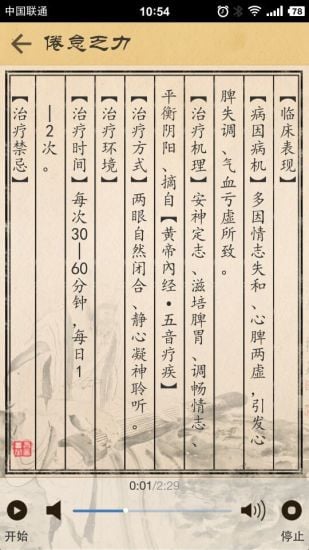 中国联通
10:54
78
倦怠乏力
【临床表现】
【病因病机】多因情志失和、心脾两虚，引发心
脾失调、气血亏虚所致。
【治疗机理】安神定志、滋培脾胃、调畅情志、
平衡阴阳、摘自【黄帝內经•五音疗疾】
【治疗方式】两眼自然闭合、静心凝神聆听。
【治疗环境】
【治疗时间】每次30—60分钟，每日1
—2次。
【治疗禁忌】
0:01/2:29
开始
停止